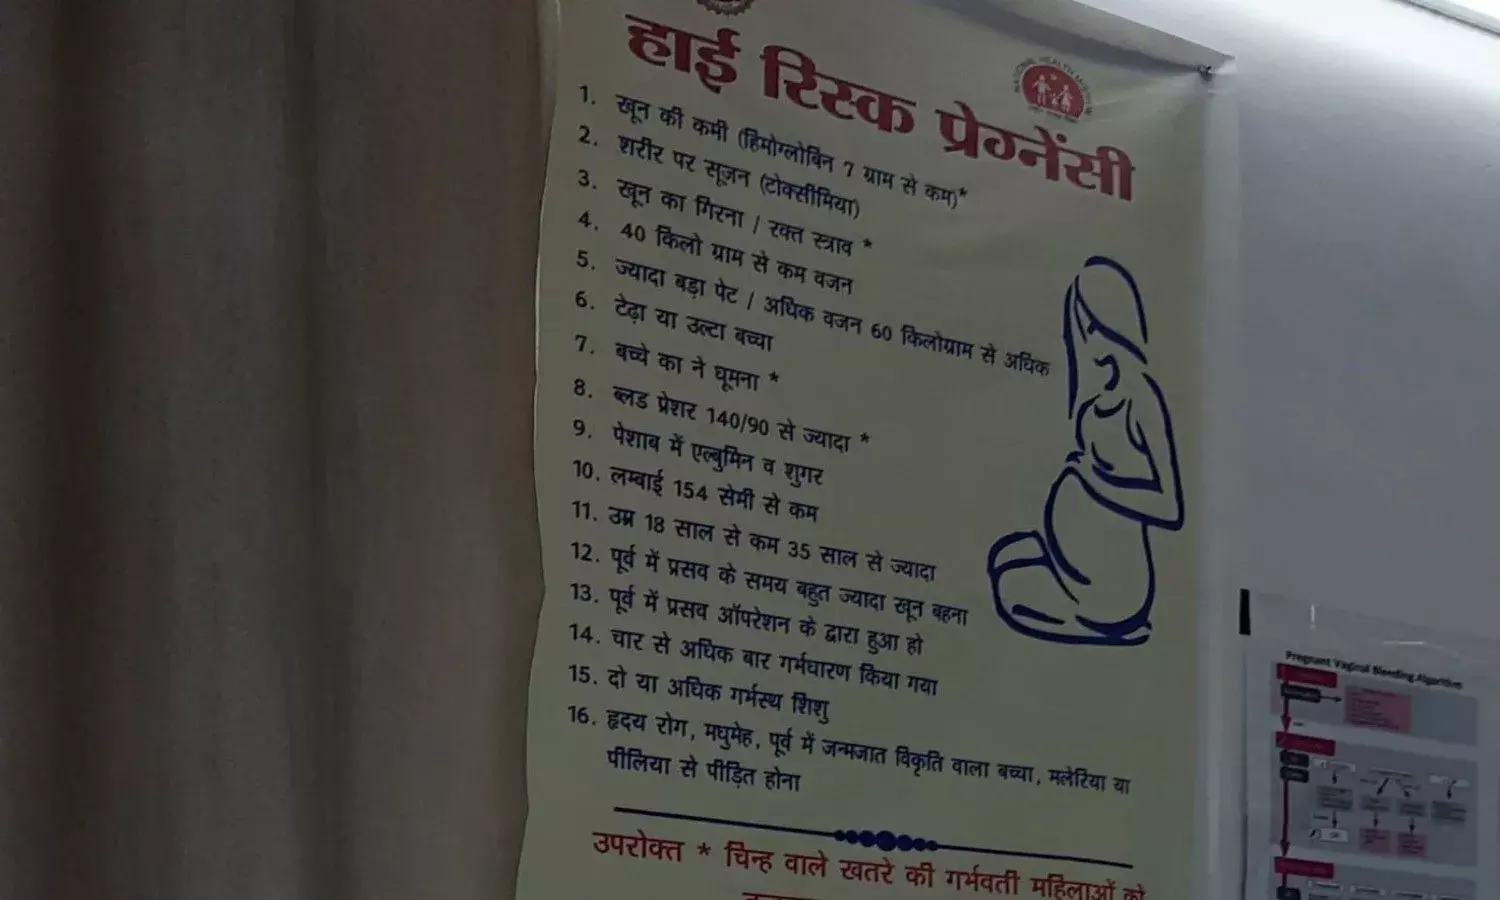 हाई रिस्क प्रेग्नेंसी
NATIONAL HEALTH MISSION
1. खून की कमी (हिमोग्लोबिन 7 ग्राम से कम)*
2. शरीर पर सूजन (टोक्सीमिया)
3. खून का गिरना / रक्त स्त्राव *
4. 40 किलो ग्राम से कम वजन
5. ज्यादा बड़ा पेट / अधिक वजन 60 किलोग्राम से अधिक
6. टेढ़ा या उल्टा बच्चा
7. बच्चे का ने घूमना *
8. ब्लड प्रेशर 140/90 से ज्यादा *
9. पेशाब में एल्बुमिन व शुगर
10. लम्बाई 154 सेमी से कम
11. उम्र 18 साल से कम 35 साल से ज्यादा
12. पूर्व में प्रसव के समय बहुत ज्यादा खून बहना
13. पूर्व में प्रसव ऑपरेशन के द्वारा हुआ हो
14. चार से अधिक बार गर्भधारण किया गया
15. दो या अधिक गर्भस्थ शिशु
16. हृदय रोग, मधुमेह, पूर्व में जन्मजात विकृति वाला बच्चा, मलेरिया या
पीलिया से पीड़ित होना
उपरोक्त * चिन्ह वाले खतरे की गर्भवती महिलाओं को
Pregnant Vaginal Bleeding Algorithm